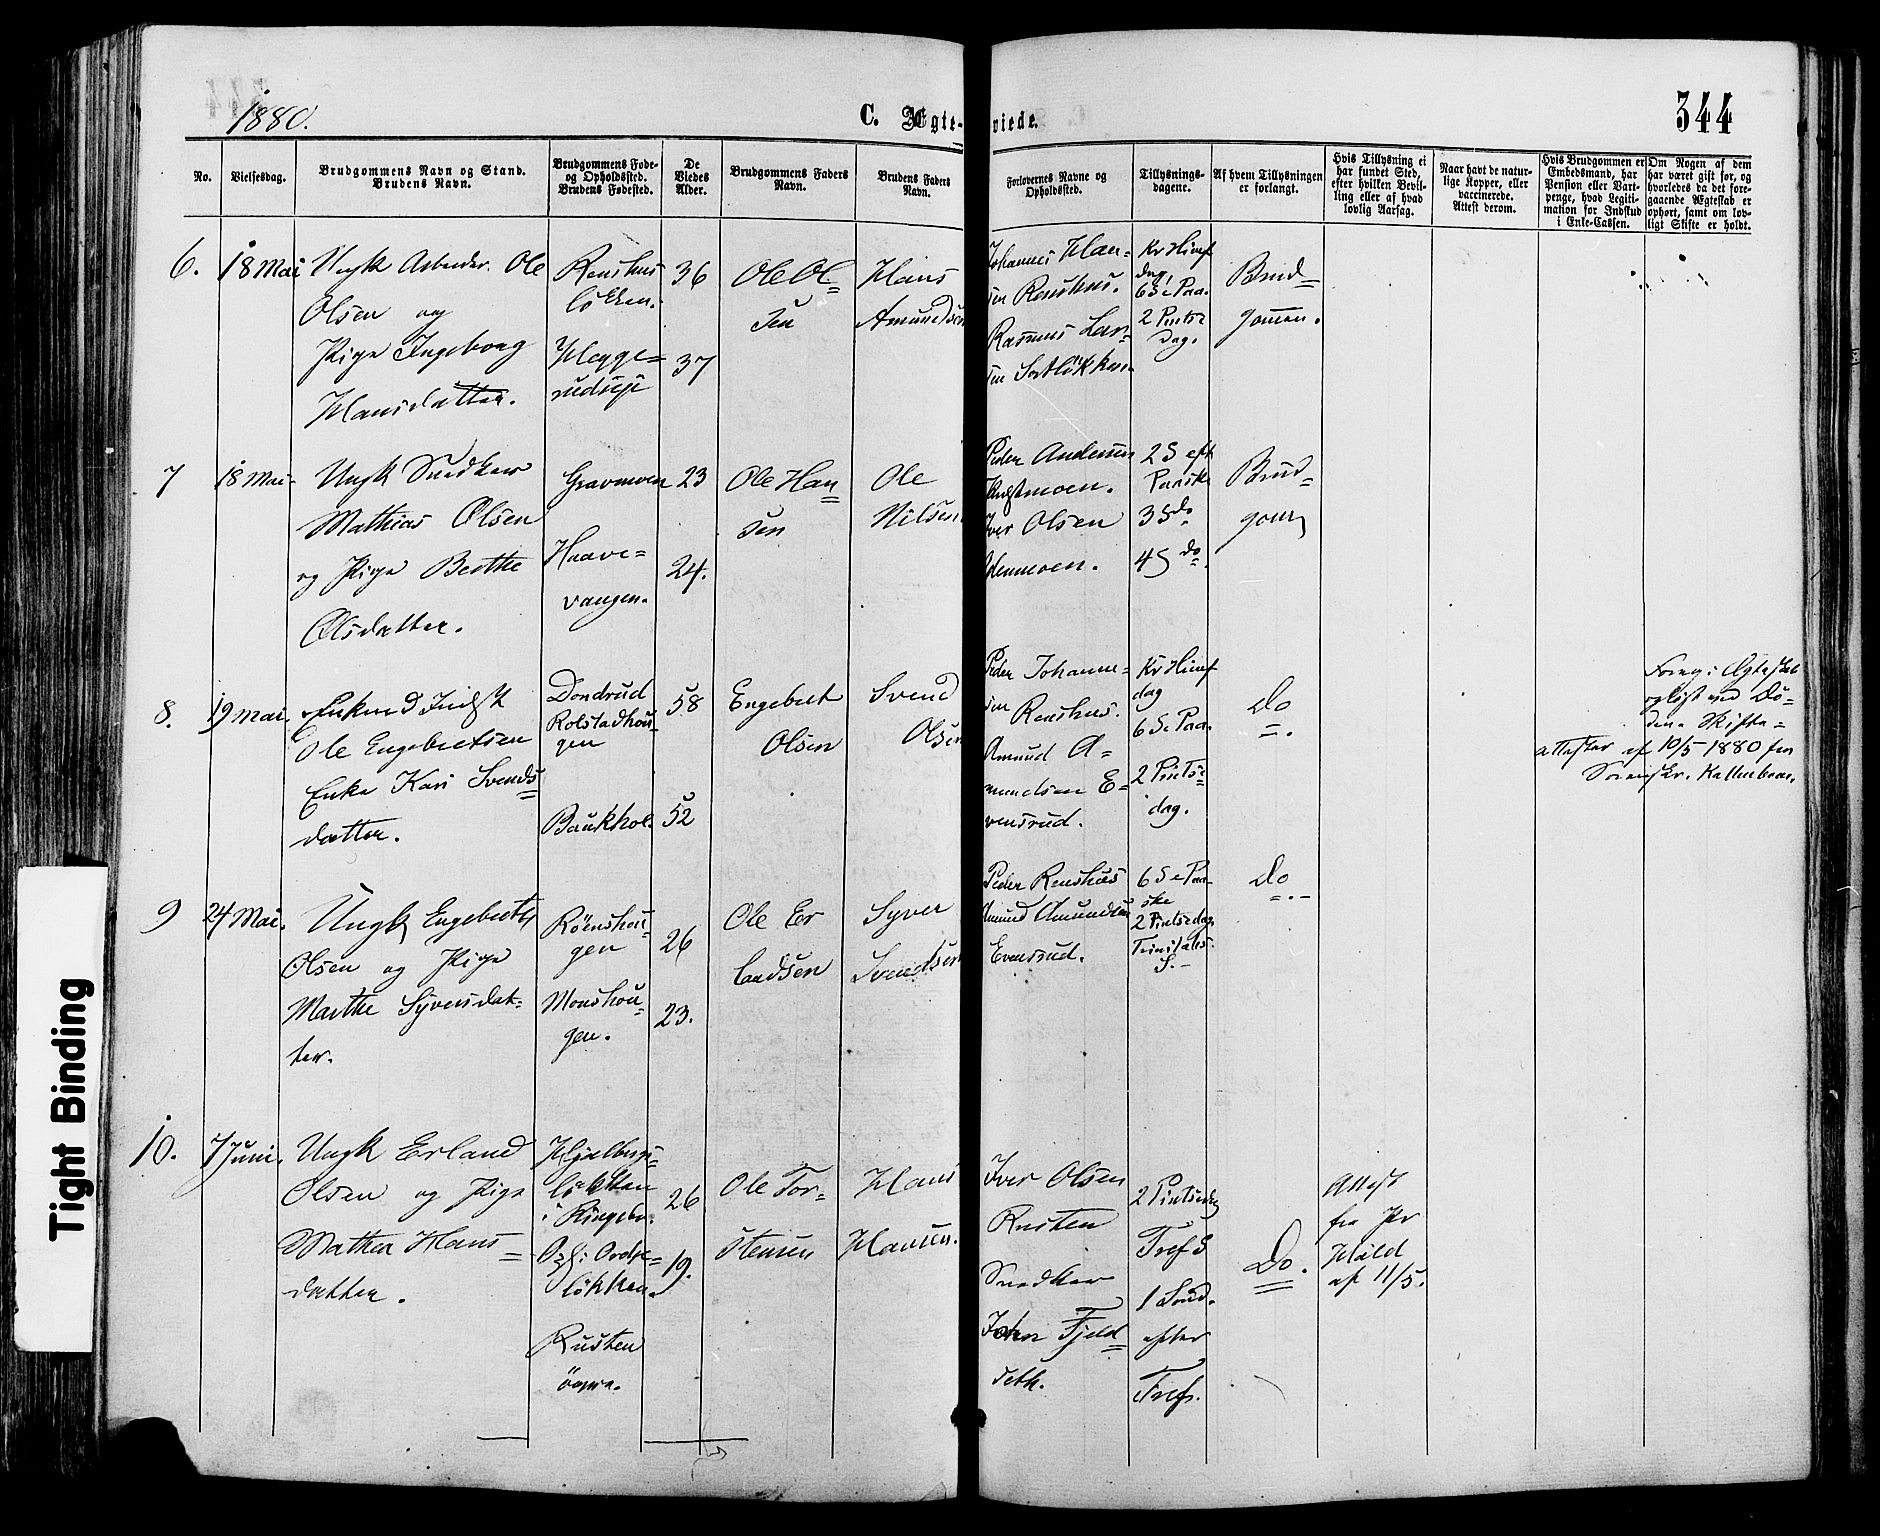 1880.
C. Ægte-
viede.
344
No.
Vielsesdag.
Brudgommens Navn og Stand.
Brudens Navn.
Brudgommens Føde-
og Opholdssted.
Brudens Fødested.
De
Viedes
Alder.
Brudgommens Faders
Navn.
Brudens Faders
Navn.
Forlovernes Navne og
Opholdssted.
Tillysnings-
dagene.
Af hvem Tillysningen
er forlangt.
Hvis Tillysning ei
har fundet Sted,
efter hvilken Bevil-
ling eller af hvad
lovlig Aarsag.
Naar havt de natur-
lige Kopper, eller
vaccinerede.
Attest derom.
Hvis Brudgommen er
Embedsmand, har
Pension eller Vart-
penge, hvad Legiti-
mation for Indskud
i Enke-Cassen.
Om Nogen af dem
har været gift før, og
hvorledes da det fore-
gaaende Ægteskab er
ophørt, samt om lov-
ligt Skifte er holdt.
6.
18 Mai
Ungk Arbeider Ole
Olsen og
Pige Ingeborg
Hansdatter.
Renshus
løkken.
Hegge=
rudseje
36
37
Ole Ol=
sen
Hans
Amundsen
Johannes Han-
sen Renshus.
Rasmus Lar-
sen
Kr Himf
dag,
6 S e Paa.
2 Pintse
Dag.
Brud=
gommen.
7
18 Mai
Ungk Snedker
Mathias Olsen
og Pige Berthe
Olsdatter.
Gravmoen
Haave=
vangen.
23
24.
Ole Han
sen
Ole
Nilsen
Peder Andersen
Iver Olsen
2 S eft
Paaske
3 S do
4 S do.
Brud=
gom
8.
19 Mai.
Enkem
Ole Engebretsen
Enke Kari Svends=
datter.
Dondrud
Rolstadhou-
gen
Baukhol.
58
52
Engebret
Olsen
Svend
Olsen
Peder Johanne=
sen Renshus.
Amund A=
mundsen E-
vensrud.
Kr Himf
dag
6 S e Paa.
2 Pintse
dag.
Do
=.
Forrig Ægteskab
opløst ved Dø-
den. Skifte=
attester af 10/5 1880 fra
9
24 Mai.
Ungk Engebret
Olsen og Pige
Marthe Syversdat=
ter.
Röenshou-
gen
Monshou-
gen.
26
23.
Ole Er
landsen
Syver
Svendsen
Peder Renshus
Amund Amundsen
Evensrud.
6 S e Paa-
ske
2 Pintsedag
Trinitatis
S.-
Do
10.
7 Juni.
Ungk Erland
Olsen og Pige
Mathea Hans=
datter.
løkken
i Ringebu.
løkken.
Rusten
øvre.
26
19.
Ole Tor-
stensen
Hans
Hansen.
Iver Olsen
Rusten
Snedker
Johan Fjeld=
seth.
2 Pintsedag
Tref S
1 Sønd.
efter
Tref.
Do.
Attest
fra Pr
Hald
af 11/5.
Tight Binding